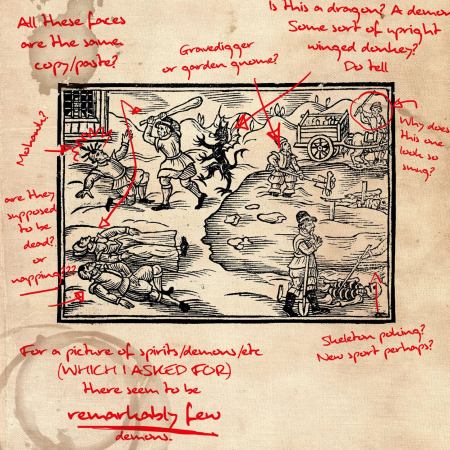 All these faces
are the same
copy/paste?
Gravedigger
or garden gnome?
Is this a dragon? A demon
Some sort of upright
winged donkey?
Do tell
Mohawk?
Why does
this one
look so
smug?
are they
supposed
to be
dead?
or
napping???
Skeleton poking?
New sport perhaps?
For a picture of spirits/demons/etc
(WHICH I ASKED FOR)
there seem to be
remarkably few
demons.